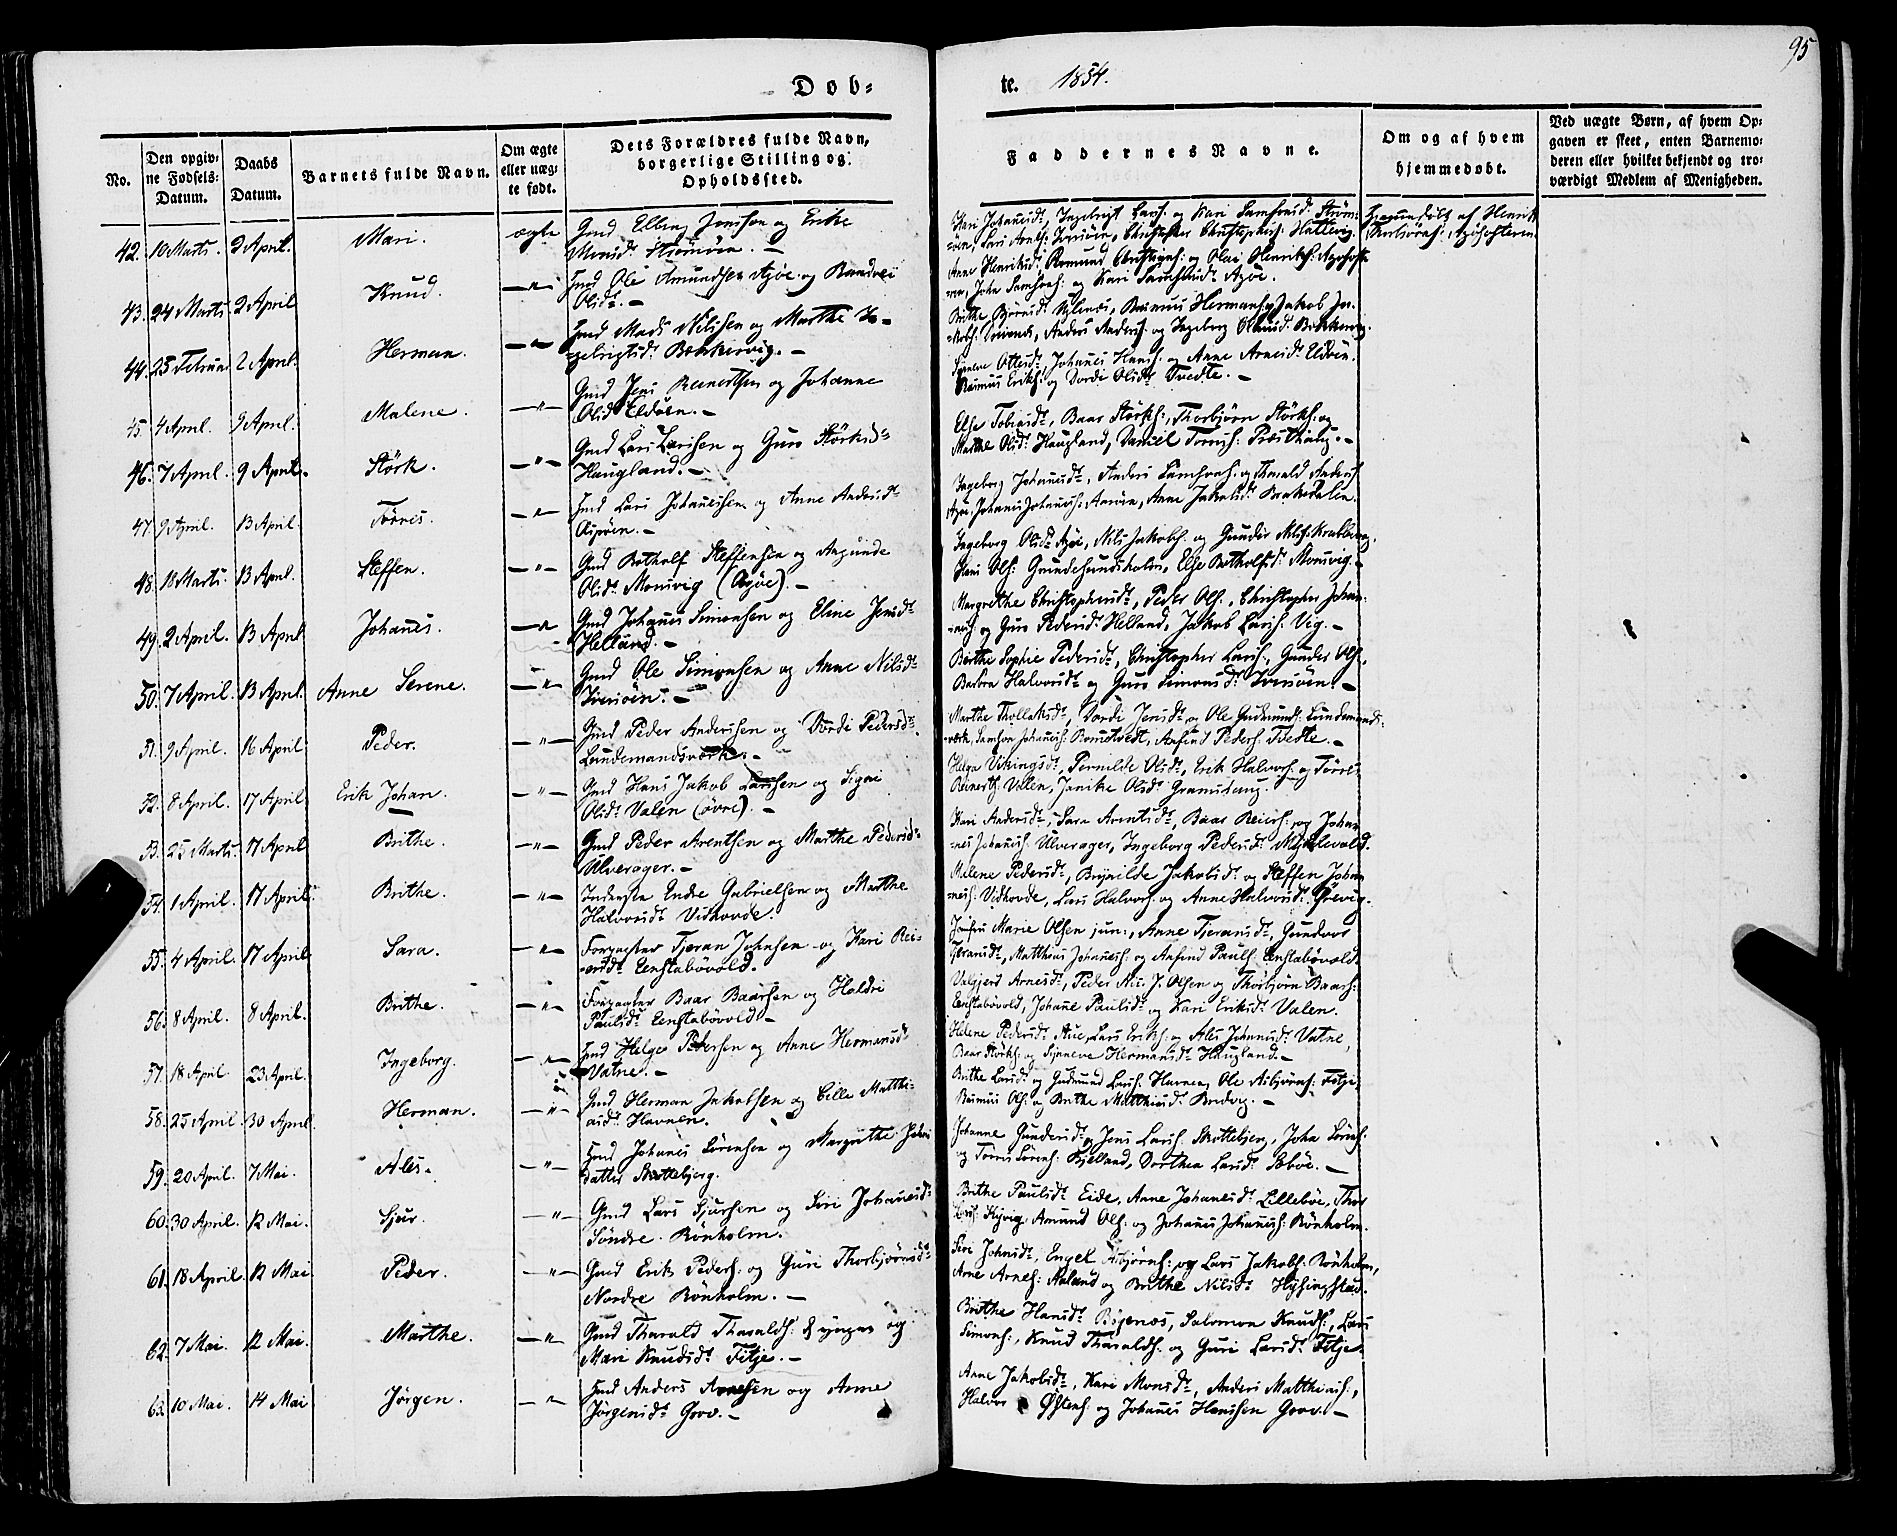 95
Døb-
te. 1854.
No.
Den opgiv-
ne Fødsels-
Datum.
Daabs
Datum.
Barnets fulde Navn.
Om ægte
eller uæg-
te født.
Dets Forældres fulde Navn,
borgerlige Stilling og
Opholdssted.
Faddernes Navne.
Om og af hvem
hjemmedøbt.
Ved uægte Børn, af hvem Op-
gaven er skeet, enten Barnemo-
deren eller hvilket bekjendt og tro-
værdigt Medlem af Menigheden.
42. 10 Marts. 2 April. Mari. ægte Gmd Elling Jensen og Erike
Monsdr
Kari Johannesdr, Ingebrigt Larss: og Kari Samsonsdr Strøm-
Hjemmedøbt af Henrik
43. 24 Marts. 2 April Knud. —"— Gmd Ole Amundsen Agøe og Randvei
Olsdr. —
Anne Henriksdr Romund Christians: og Olai Henriks:
John Samsons: og Kari Samsonsdr Agøe.
44. 25 Februar 2 April. Herman. —"— Gmd Mads Nilssen og Marthe In-
gebrigtsdr Bekkervig. —
Brithe Bjørnsdr Nylenæs, Rasmus Hermans: Jakob Ja-
Anders Anders: og Ingeborg Olsdr Bekkervig.
45. 4 April. 9 April. Malene. —"— Gmd Jens Reinertsen og Johanne
Olsdr Eldøen. —
Synneve Ottesdr, Johannes Hans: og Anne Arnesdr Eldøen.
Rasmus Eriks: og Dordi Olsdr Tvedte. —
46. 7 April. 9 April. Størk. —"— Gmd Lars Larssen og Guro Størksdr
Haugland. —
Else Tobiasdr, Baar Størks:, Thorbjørn Størks: og
Marthe Olsdr Haugland, Daniel Tornes: Præsthaug. —
47. 9 April. 13 April. Tørris. —"— Gmd Lars Johannessen og Anne Andersdr
Aspøen. —
Ingeborg Johannesdr, Anders Samsons: og Tharald Anders:
Agøe, Johannes Johanness: Anne Jakobsdr Brakedalen.
48. 18 Marts. 13 April. Steffen. —"— Gmd Botholf Steffensen og Amunde
Olsdr Mousvig (Agøe). —
Ingeborg Olsdr Agøe, Nils Jakobs: og Gunder Nils:
Hans Ols: Else Botholfsdr Mousvig. —
49. 2 April. 13 April Johannes. —"— Gmd Johannes Simonsen og Eline Jensdr
Helland. —
Margrethe Christophersdr, Peder Ols:, Christopher Johan-
nes: og Guro Pedersdr Helland, Jakob Lars: Vig. —
50. 7 April. 13 April. Anne Serene. —"— Gmd Ole Simonsen og Anne Nilsdr
Iversøen. —
Berthe Sophie Pedersdr, Christopher Lars:, Gunder Ols:,
Barbra Halvorsdr og Guro Simonsdr Iversøen. —
51. 9 April. 16 April Peder. —"— Gmd Peder Anderssen og Dordi Pedersdr
Lundemandsværk. —
Marthe Thollaksdr, Dordi Jensdr og Ole Gudmunds: Lundemands-
værk, Samson Johanness: Arfind Peders: Tvedte. —
52. 8 April. 17 April. Erik Johan. —"— Gmd Hans Jakob Larssen og Signi
Olsdr Valen (øvre). —
Helga Vikingsdr, Pernilde Olsdr, Erik Halvors: og Tørres
Reinerts: Vallen, Janike Olsdr
53. 25 Marts. 17 April Brithe. —"— Gmd Peder Arentsen og Marthe Pedersdr
Ulverager. —
Kari Andersdr, Sara Arentsdr, Baar Reiers: og Johan-
nes Johanness: Ulverager, Ingeborg Pedersdr Myklevold.
54. 1 April. 17 April. Brithe. —"— Inderste Endre Gabrielsen og Marthe
Halvorsdr Vidhovde.
Malene Pedersdr, Brynilde Jakobsdr og Steffen Johan-
ness: Vidhovde, Lars Halvors: og Anne Halvorsdr
55. 4 April. 17 April Sara. —"— Forpagter Tjeran Johnsen og Kari Rei-
ersdr Eenstabøvold.
Jomfru Marie Olsen jun:, Anne Tjeransdr, Gundvor
Tjeransdr, Matthias Johanness: og Arfind Pauls: Eenstabøvold.
56. 8 April. 8 April. Brithe. —"— Forpagter Baar Baarsen og Haldri
Paulsdr Eenstabøvold. —
Valgjerd Arnesdr, Peder Nic: J. Olsen og Thorbjørn Baars:
Eenstabøvold, Johanne Paulsdr og Kari Eriksdr Valen.
57. 18 April 23 April. Ingeborg. —"— Gmd Helge Petersen og Anne Hermansdr
Vatne. —
Helene Pedersdr Stue, Lars Eriks: og Ales Johnsdr Vatne,
Baar Størks: og Synneve Hermansdr Haugland. —
58. 25 April. 30 April. Herman. —"— Gmd Herman Jakobsen og Cille Matthi-
asdr Havnen.
Brithe Larsdr og Gudmund Lars: Havnen, Ole Asbjørns: Fitje,
Rasmus Ols: og Brithe Matthiasdr
59. 20 April. 7 Mai. Ales. —"— Gmd Johannes Sørensen og Margrethe Jens-
datter Skottebjerg.
Johanne Gundersdr og Jens Lars: Skottebjerg, John Sørens:
og Tørres Sørens: Kjelland, Dorthea Larsdr Sæbøe. —
60. 30 April. 12 Mai. Sjur. —"— Gmd Lars Sjursen og Siri Johannesdr
Søndre Rönholm.
Brithe Paulsdr Eide, Anne Johannesdr Lillebøe, Thor
Amund Ols: og Johannes Johanness: Rönholm.
61. 18 April. 12 Mai. Peder. —"— Gmd Erik Peders: og Guri Thorbjørnsdr
Nordre Rönholm. —
Siri Johnsdr, Engel Asbjørns: og Lars Jakobs: Rönholm,
Arne Arnes: Aaland og Brithe Nilsdr
62. 7 Mai. 12 Mai. Marthe. —"— Gmd Tharald Tharalds: d yngre og
Mari Knudsdr Fitje. —
Brithe Hansdr Salomon Knuds:, Lars
Simons:, Knud Tharalds: og Guri Larsdr Fitje.
63. 10 Mai. 14 Mai Jørgen. —"— Gmd Anders Arnesen og Anne
Jørgensdr Grov. —
Anne Jakobsdr, Kari Monsdr, Anders Matthias:,
Halvor Østens: og Johannes Hanssen Grov. —